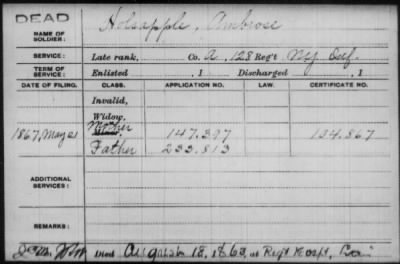 DEAD
NAME OF SOLDIER: Holsapple, Ambrose
SERVICE: Late rank, Co. A, 128 Reg't N.Y. Inf.
TERM OF SERVICE: Enlisted , 1 Discharged , 1
DATE OF FILING. CLASS. APPLICATION NO. LAW. CERTIFICATE NO.
Invalid,
Widow,
1867, May 21 Mother 147.397 104.867
Father 233.813
ADDITIONAL SERVICES:
REMARKS:
Died August 18, 1863, at Regt Hospt,